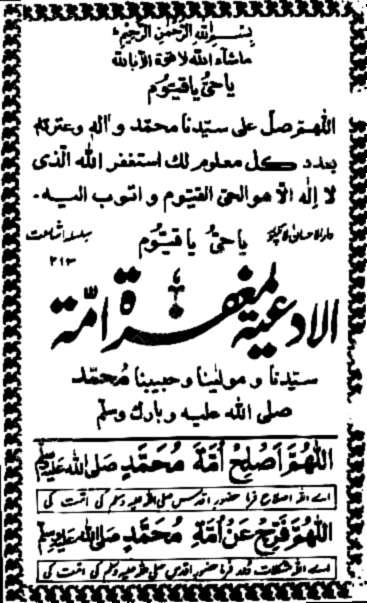 بسم الله الرحمن الرحيم
ماشاء الله لا قوة الا بالله
یا حیُّ یا قیّوم
اللهم صل على سيّدنا محمّد و اله وعترته
بعدد كل معلوم لك استغفر الله الذى
لا إله الا هو الحى القيّوم و اتوب اليه.
یا حیُّ یا قیّوم
سلسله اشاعت
۲۱۳
الادعية لمغفرة امّة
سيّدنا و مولينا و حبيبنا محمّد
صلى الله عليه و بارك وسلّم
اللّٰهُمَّ اَصْلِحْ اُمَّةَ مُحَمَّدٍ صلى الله عليه وسلم
اے اللہ اصلاح فرما حضورِ اقدس صلی اللہ علیہ وسلم کی امّت کی
اللّٰهُمَّ فَرِّجْ عَنْ اُمَّةِ مُحَمَّدٍ صلى الله عليه وسلم
اے اللہ مشکلات دور فرما حضورِ اقدس صلی اللہ علیہ وسلم کی امّت کی